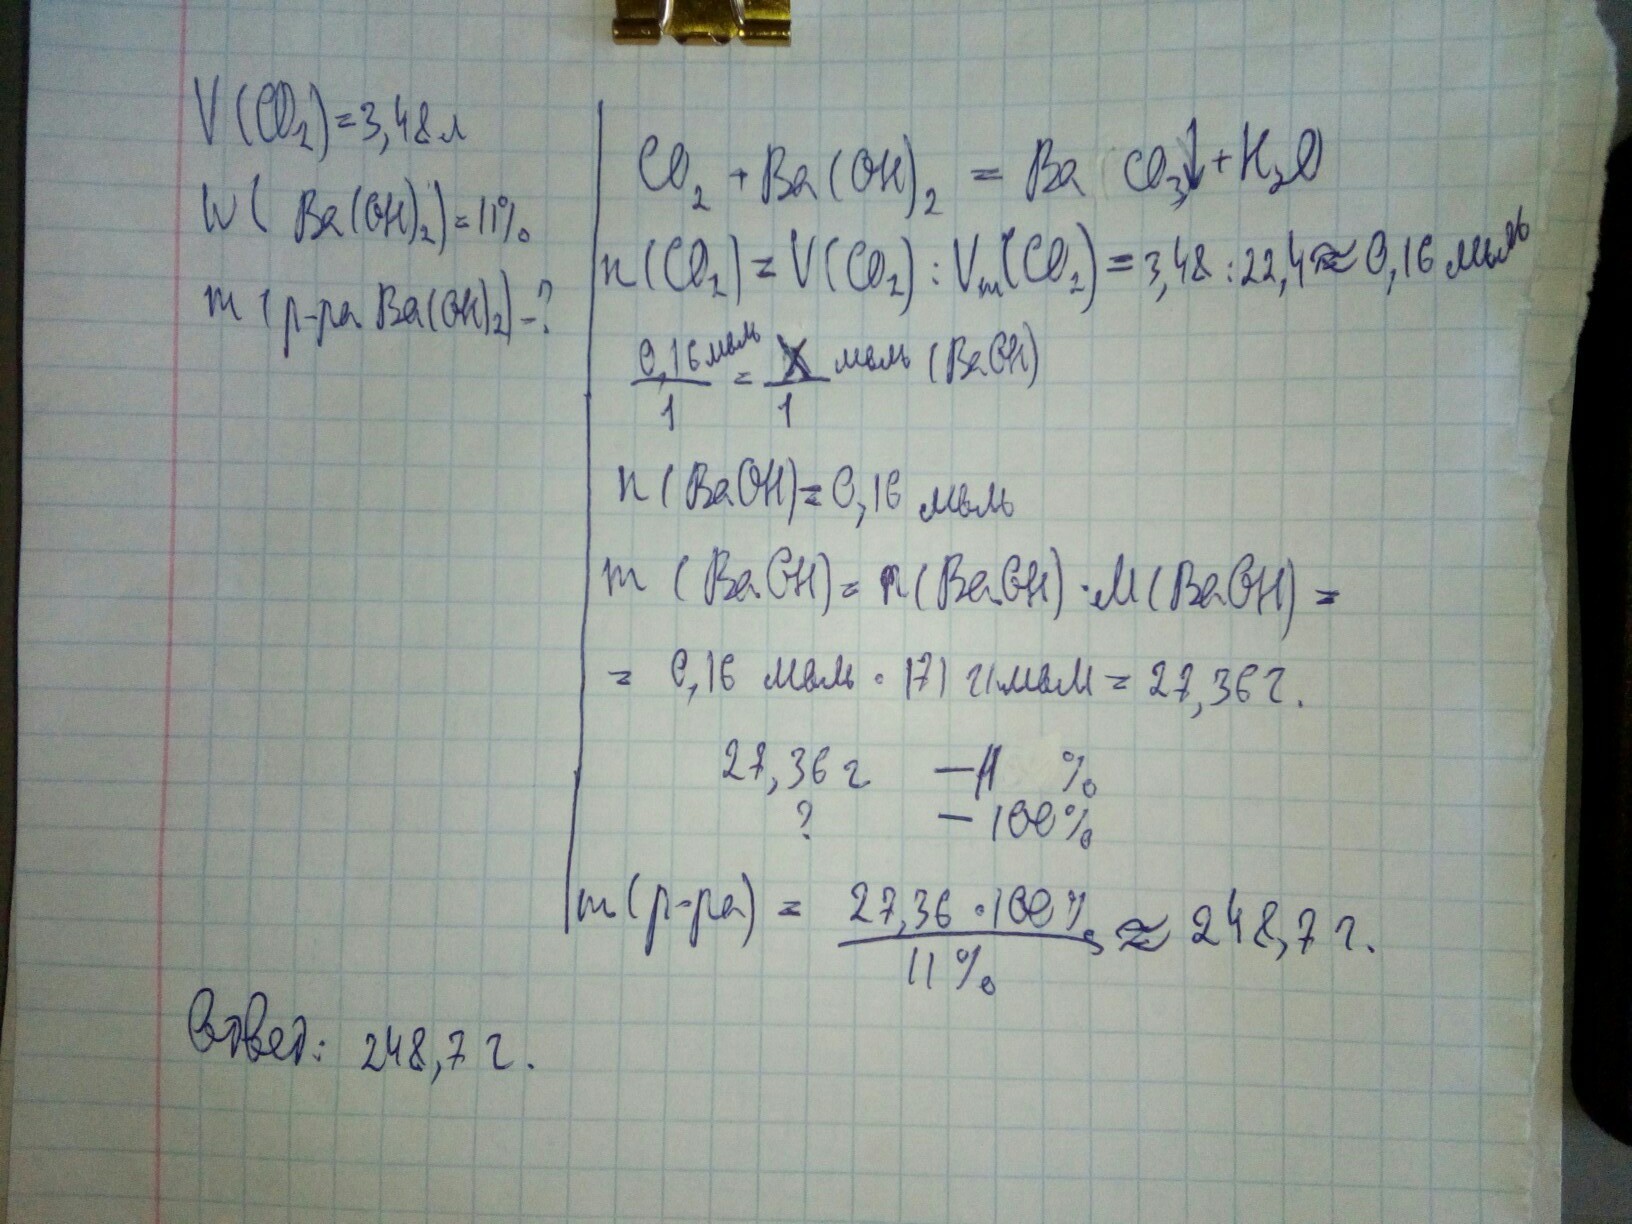 V(CO₂)=3,48л
W( Ba(OH)₂)=11%
m (р-ра Ba(OH)₂)-?
CO₂ + Ba(OH)₂ = Ba CO₃↓+H₂O
n(CO₂)=V(CO₂):Vm(CO₂)=3,48:22,4≈0,16 моль
0,16 моль/1 = X/1 моль (BaOH)
n(BaOH)=0,16 моль
m (BaOH)= n(BaOH)·M(BaOH)=
= 0,16 моль · 171 г/моль = 27,36 г.
27,36 г — 11 %
? — 100%
m(р-ра) = 27,36·100%/11% ≈ 248,7 г.
Ответ: 248,7 г.